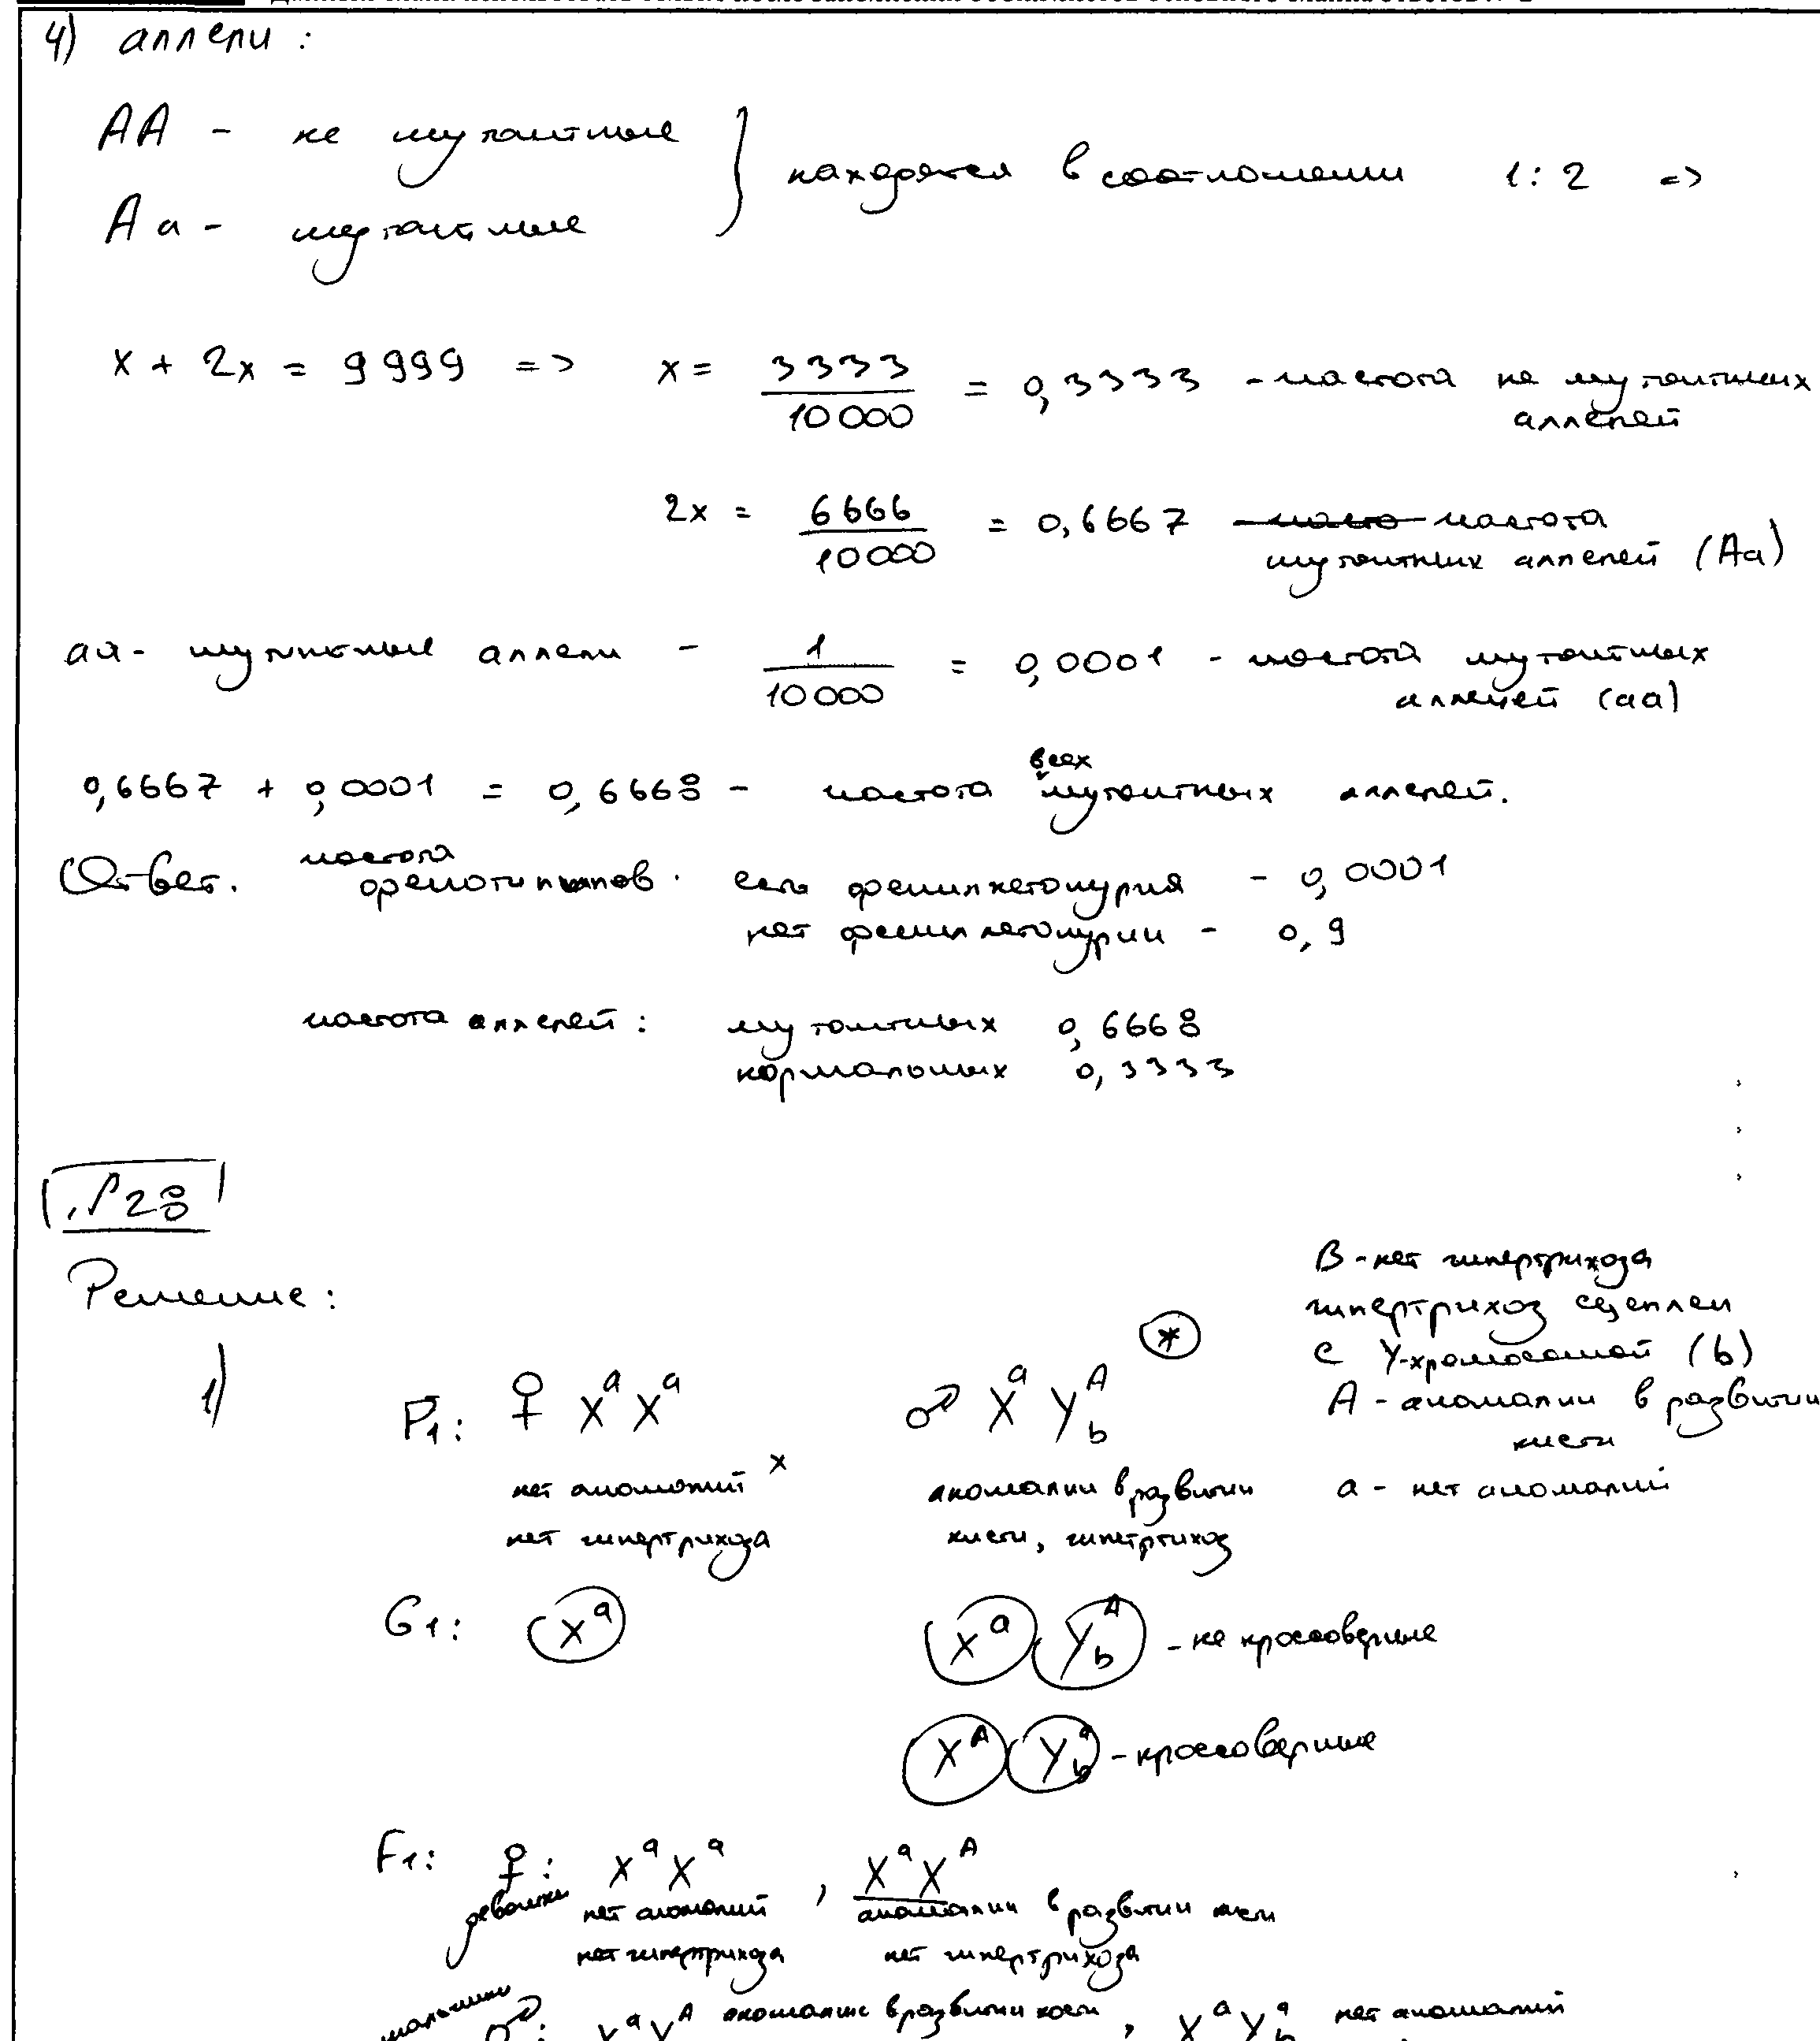 4) аллели :
АА - не мутантные
Аа - мутантные
} находятся в соотношении 1 : 2 =>
x + 2x = 9999 => x = 3333/10000 = 0,3333 - частота не мутантных аллелей
2x = 6666/10000 = 0,6667 - частота мутантных аллелей (Аа)
аа - мутантные аллели - 1/10000 = 0,0001 - частота мутантных аллелей (аа)
0,6667 + 0,0001 = 0,6668 - частота всех мутантных аллелей.
Ответ. частота фенотипов. есть фенилкетонурия - 0,0001
нет фенилкетонурии - 0,9
частота аллелей : мутантных 0,6668
нормальных 0,3333
№28
Решение :
B - нет гипертрихоза
гипертрихоз сцеплен
с Y-хромосомой (b)
A - аномалии в развитии
кисти
a - нет аномалий
1) P1: ♀ XᵃXᵃ x ♂ XᵃY_bᴬ (*)
нет аномалий аномалии в развитии
нет гипертрихоза кисти, гипертрихоз
G1: Xᵃ Xᵃ Y_bᴬ - не кроссоверные
Xᴬ Y_bᵃ - кроссоверные
F1: ♀: XᵃXᵃ , XᵃXᴬ
девочки нет аномалий аномалии в развитии кисти
нет гипертрихоза нет гипертрихоза
мальчики ♂: XᵃYᴬ аномалии в развитии кисти , XᵃY_bᵃ нет аномалий